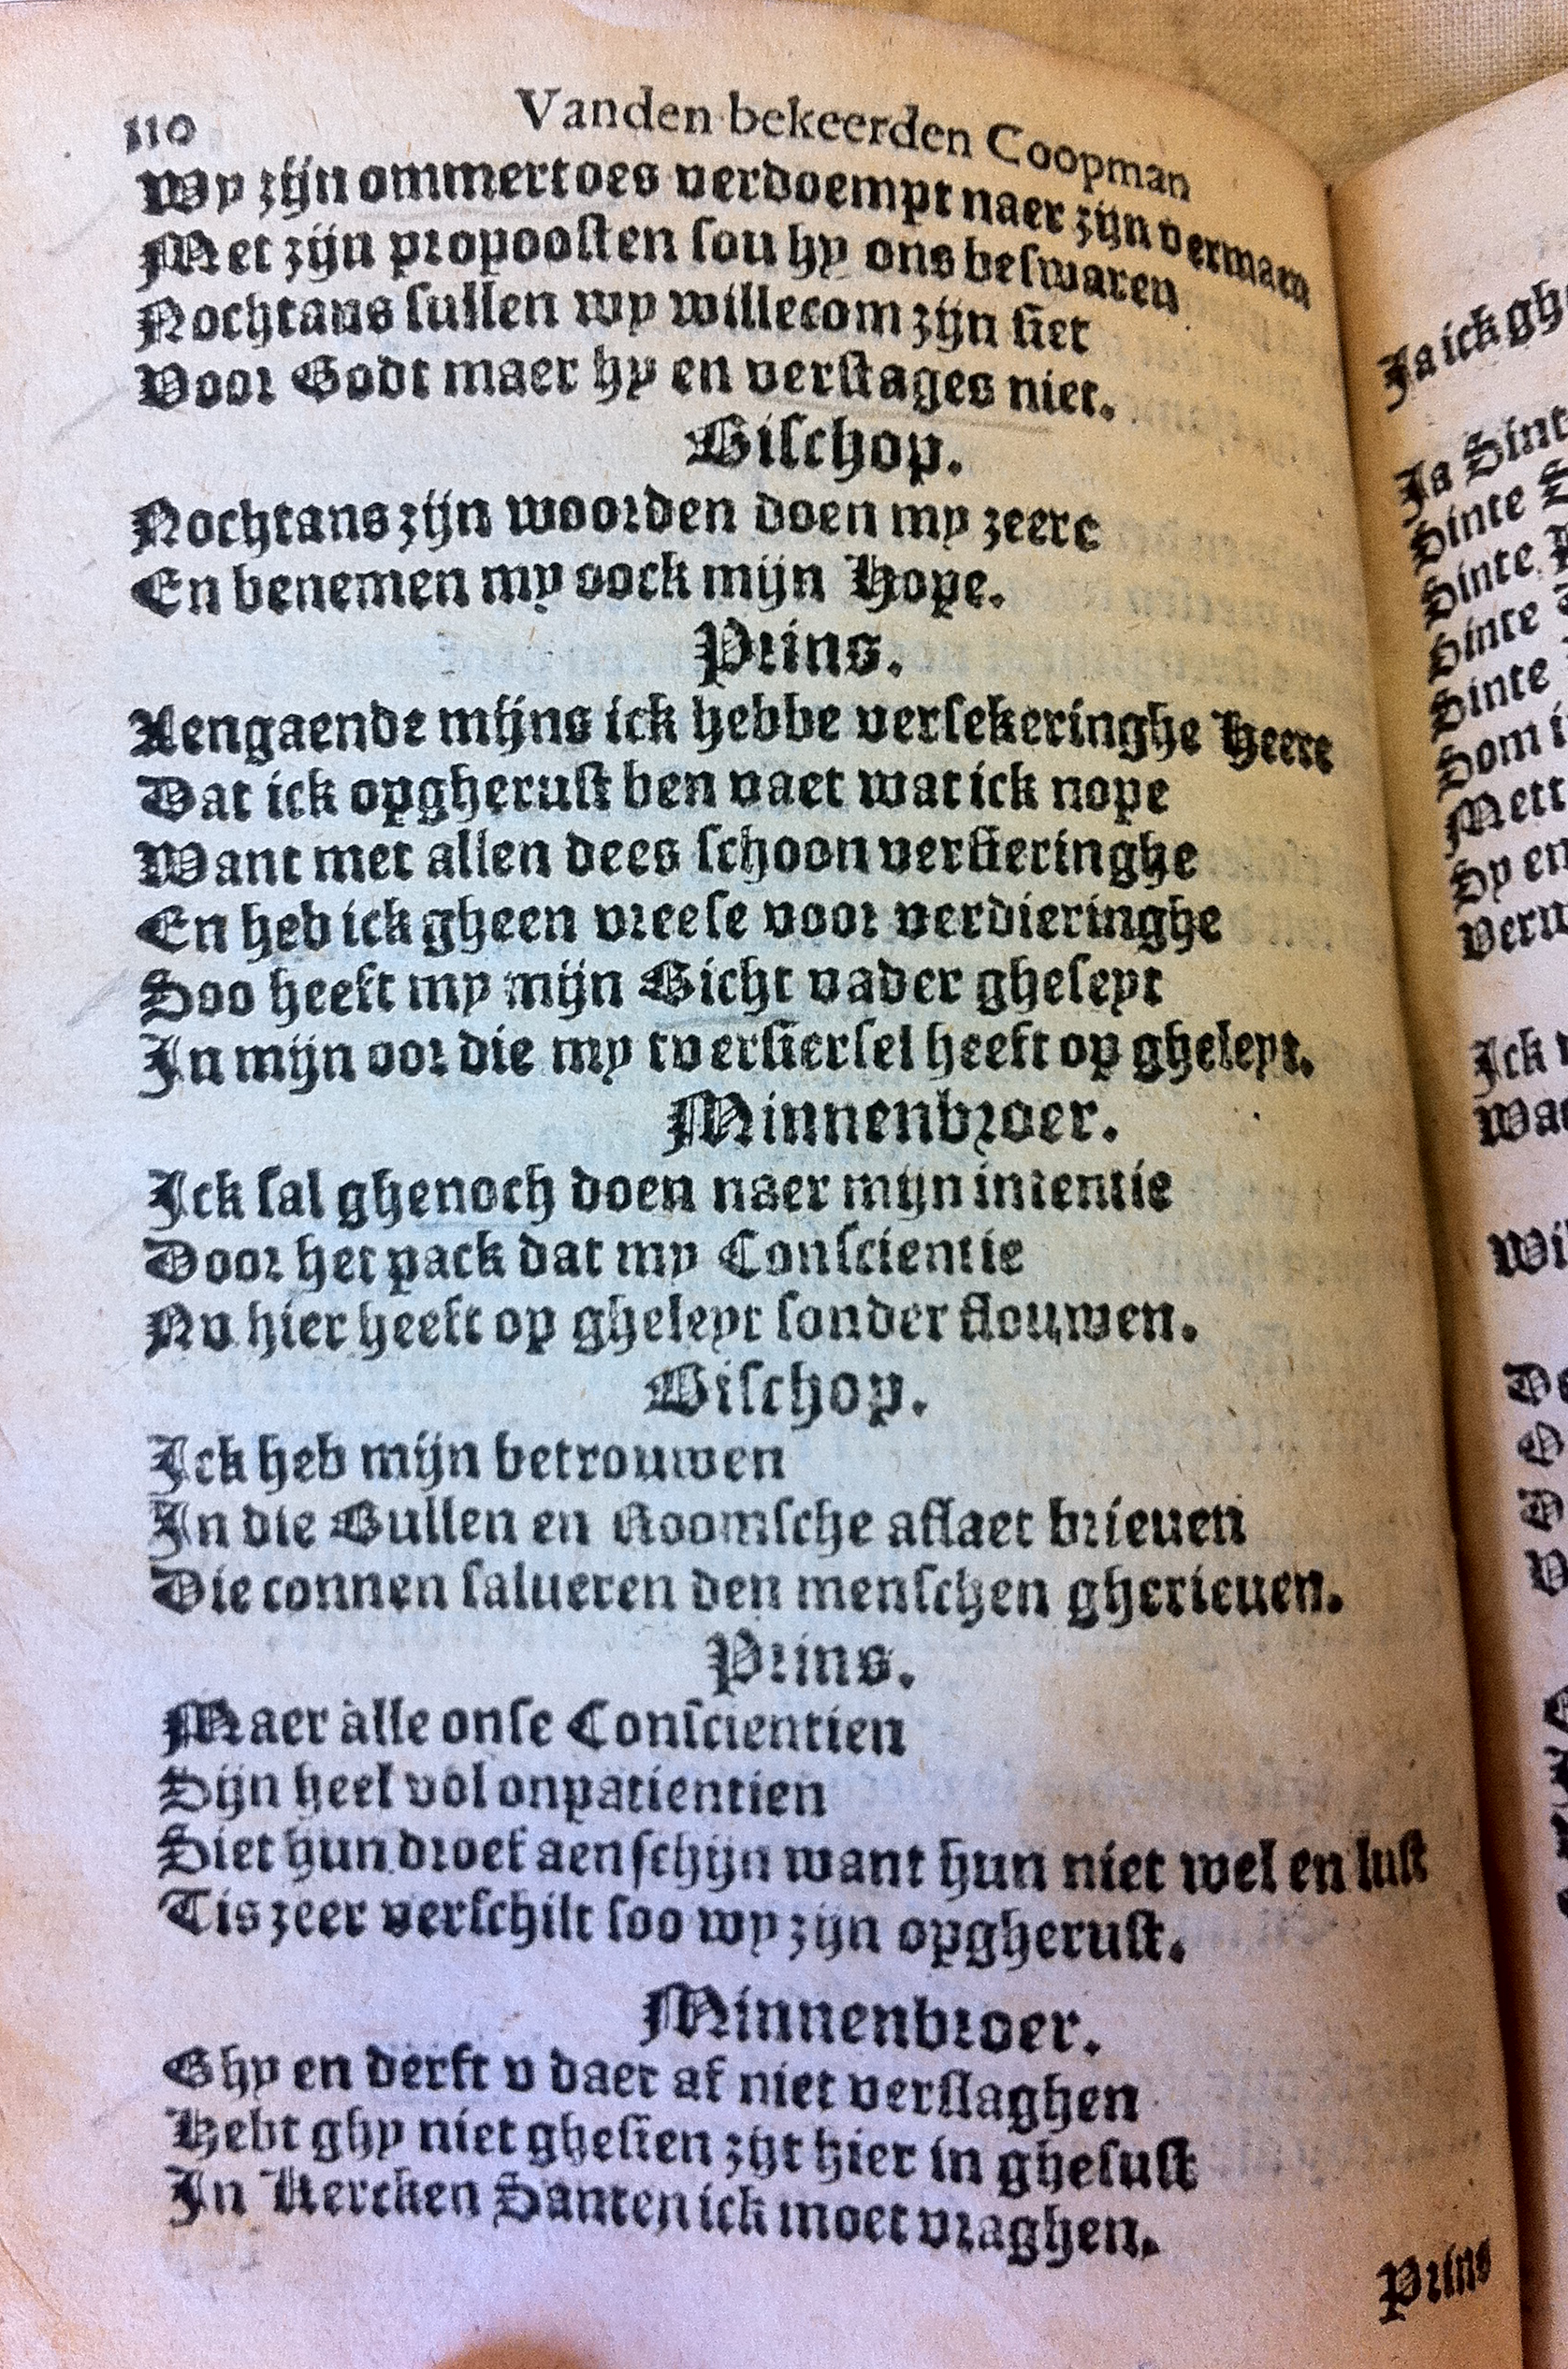 110
Vanden bekeerden Coopman
Wy zijn ommertoes verdoempt naer zijn vermaen
Met zijn propoosten sou hy ons beswaren
Nochtans sullen wy willecom zijn siet
Voor Godt maer hy en verstages niet.
Bisschop.
Nochtans zijn woorden doen my zeere
En benemen my oock mijn Hope.
Prins.
Aengaende mijns ick hebbe versekeringhe Heere
Dat ick opgherust ben vaet wat ick nope
Want met allen dees schoon versieringhe
En heb ick gheen vreese voor verdieringhe
Soo heeft my mijn Bicht vader gheseyt
In mijn oor die my tversiersel heeft op gheleyt.
Minnenbroer.
Ick sal ghenoch doen naer mijn intentie
Door het pack dat my Conscientie
Nv hier heeft op gheleyt sonder flouwen.
Bischop.
Ick heb mijn betrouwen
In die Bullen en Roomsche aflaet brieuen
Die connen salueren den menschen gherieuen.
Prins.
Maer alle onse Conscientien
Sijn heel vol onpatientien
Siet hun droef aenschijn want hun niet wel en lust
Tis zeer verschilt soo wy zijn opgherust.
Minnenbroer.
Ghy en derft v daer af niet verslaghen
Hebt ghy niet ghesien zijt hier in ghesust
In Kercken Santen ick moet vraghen.
Prins
Ja ick
Ja Sint
Sinte
Sinte
Sinte
Sinte
Som
Mett
Sy en
Ick